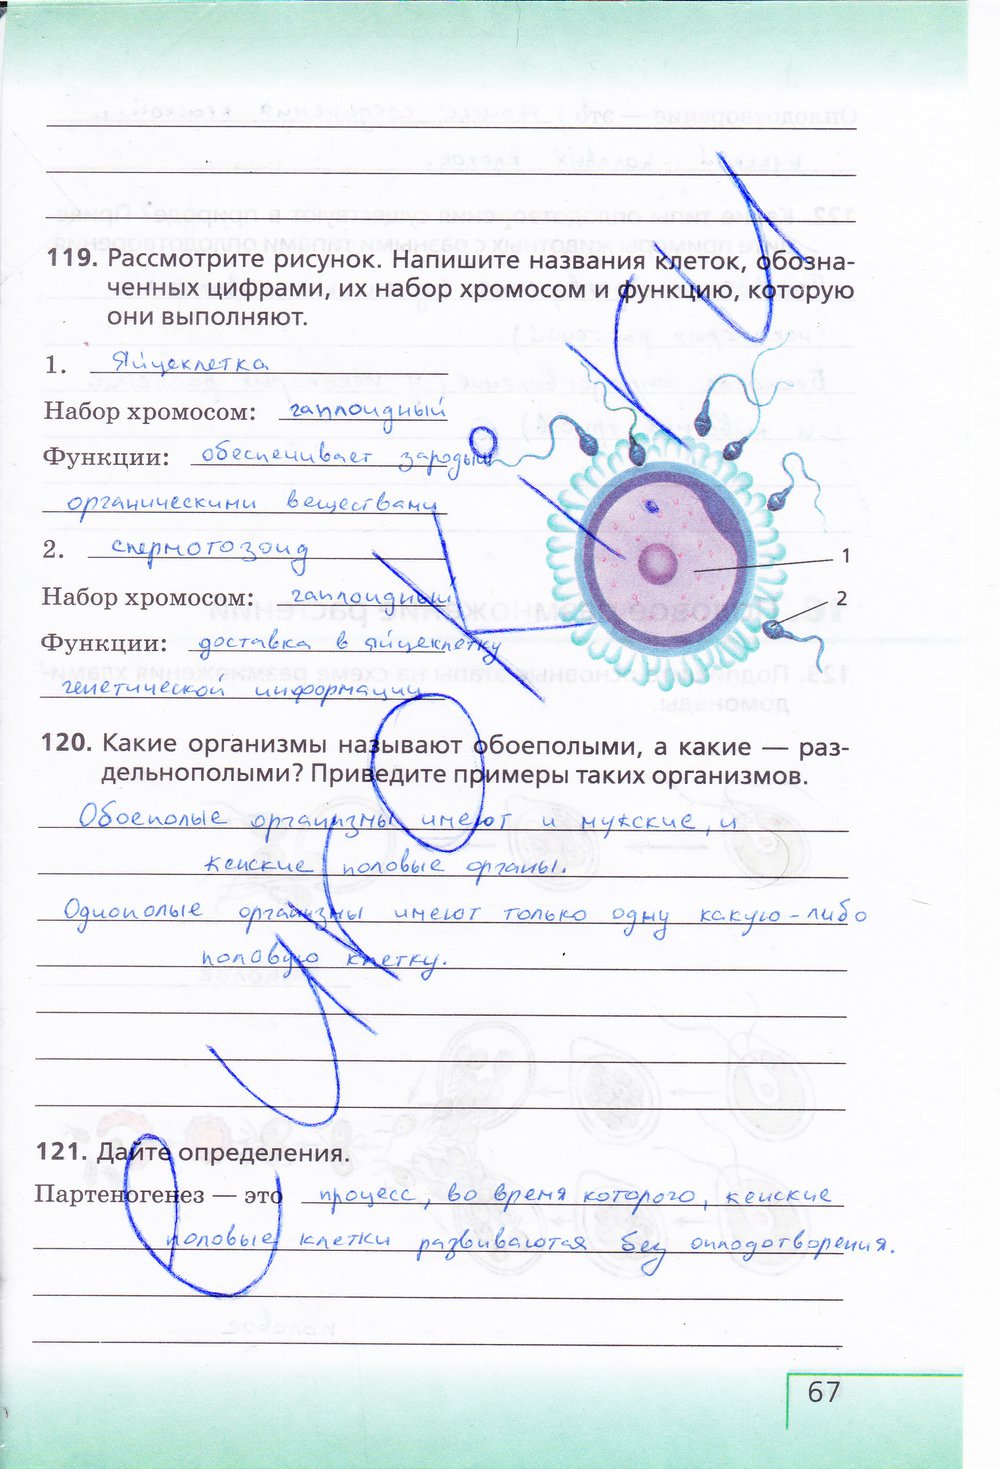 119. Рассмотрите рисунок. Напишите названия клеток, обозна-
ченных цифрами, их набор хромосом и функцию, которую
они выполняют.
1. Яйцеклетка
Набор хромосом: гаплоидный
Функции: обеспечивает зародыш
органическими веществами
2. спермотозоид
Набор хромосом: гаплоидный
Функции: доставка в яйцеклетку
генетической информации
1
2
120. Какие организмы называют обоеполыми, а какие — раз-
дельнополыми? Приведите примеры таких организмов.
Обоеполые организмы имеют и мужские, и
женские половые органы.
Однополые организмы имеют только одну какую-либо
половую клетку.
121. Дайте определения.
Партеногенез — это процесс, во время которого, женские
половые клетки развиваются без оплодотворения.
67